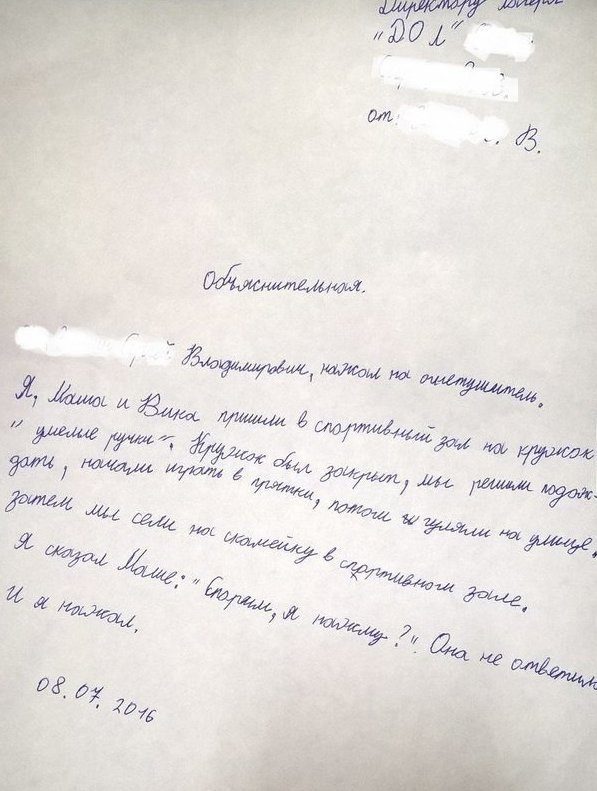 Директору лагеря
"ДОЛ"
от
В.
Объяснительная.
Владимирович, нажал на огнетушитель.
Я, Маша и Вика пришли в спортивный зал на кружок
"умелые ручки". Кружок был закрыт, мы решили подож-
дать, начали играть в прятки, потом гуляли на улице.
Затем мы сели на скамейку в спортивном зале.
Я сказал Маше: "Спорим, я нажму?". Она не ответила
И я нажал.
08.07.2016